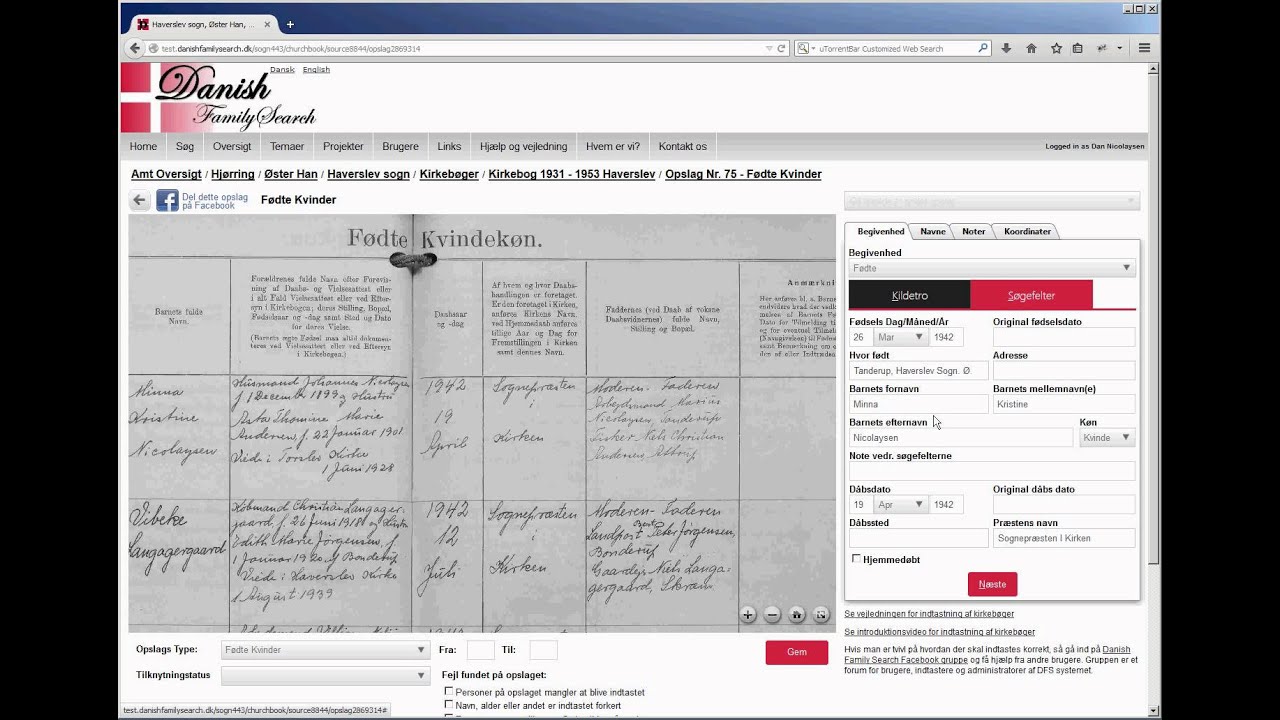 Haverslev sogn, Øster Han, ...
test.danishfamilysearch.dk/sogn443/churchbook/source8844/opslag2869314
uTorrentBar Customized Web Search
Dansk English
Danish
FamilySearch
Home Søg Oversigt Temaer Projekter Brugere Links Hjælp og vejledning Hvem er vi? Kontakt os
Logged in as Dan Nicolaysen
Amt Oversigt / Hjørring / Øster Han / Haverslev sogn / Kirkebøger / Kirkebog 1931 - 1953 Haverslev / Opslag Nr. 75 - Fødte Kvinder
Del dette opslag
på Facebook
Fødte Kvinder
Fødte Kvindekøn.
Barnets fulde
Navn.
Forældrenes fulde Navn efter Forevis-
ning af Daabs- og Vielsesattest eller
i alt Fald Vielsesattest eller ved Efter-
syn i Kirkebogen; deres Stilling, Bopæl,
Fødselsdag og
for deres Vielse.
(Barnets egte Fødsel maa altid dokumen-
teres ved Vielsesattest eller ved Eftersyn
i Kirkebogen.)
Daabsaar
og -dag
Af hvem og hvor Daabs-
handlingen er foretaget.
Er den foretaget i Kirken,
anføres Kirkens Navn,
ved Hjemmedaab anføres
tillige Aar og Dag for
Fremstillingen i Kirken
samt dennes Navn.
Faddernes (ved Daab af voksne
Daabsvidnernes) fulde Navn,
Stilling og Bopæl.
Anmærkni
Minna
Kristine
Nicolaysen
Husmand Johannes Nicolaysen
f. 1 December 1899 og Hustru
Asta Thomine Marie
Andersen, f. 22 Januar 1901
Viede i Torslev Kirke
1 Juni 1928
1942
19
April
Sognepræsten
i
Kirken
Moderen - Faderen
Arbejdsmand Marius
Nicolaysen, Tanderup
Fisker Niels Christian
Andersen, Attrup
Vibeke
Langagergaard
Købmand Christian Langager-
gaard, f. 26 Juni 1918 og Hustru
Edith Marie Jørgensen, f.
1 Januar 1920, Bonderup
Viede i Haverslev Kirke
1 August 1939
1942
12
Juli
Sognepræsten
i
Kirken
Moderen - Faderen
Landpost Peter Jørgensen,
Bonderup
Gaardejer Niels Langa-
gergaard, Skræm
Begivenhed Navne Noter Koordinater
Begivenhed
Fødte
Kildetro Søgefelter
Fødsels Dag/Måned/År Original fødselsdato
26 Mar 1942
Hvor født Adresse
Tanderup, Haverslev Sogn. Ø
Barnets fornavn Barnets mellemnavn(e)
Minna Kristine
Barnets efternavn Køn
Nicolaysen Kvinde
Note vedr. søgefelterne
Dåbsdato Original dåbs dato
19 Apr 1942
Dåbssted Præstens navn
Sognepræsten I Kirken
Hjemmedøbt
Næste
Se vejledningen for indtastning af kirkebøger
Se introduktionsvideo for indtastning af kirkebøger
Hvis man er tvivl på hvordan der skal indtastes korrekt, så gå ind på Danish
Family Search Facebook gruppe og få hjælp fra andre brugere. Gruppen er et
forum for brugere, indtastere og administratorer af DFS systemet.
Opslags Type: Fødte Kvinder Fra: Til: Gem
Tilknytningstatus
Fejl fundet på opslaget:
Personer på opslaget mangler at blive indtastet
Navn, alder eller andet er indtastet forkert
test.danishfamilysearch.dk/sogn443/churchbook/source8844/opslag2869314#